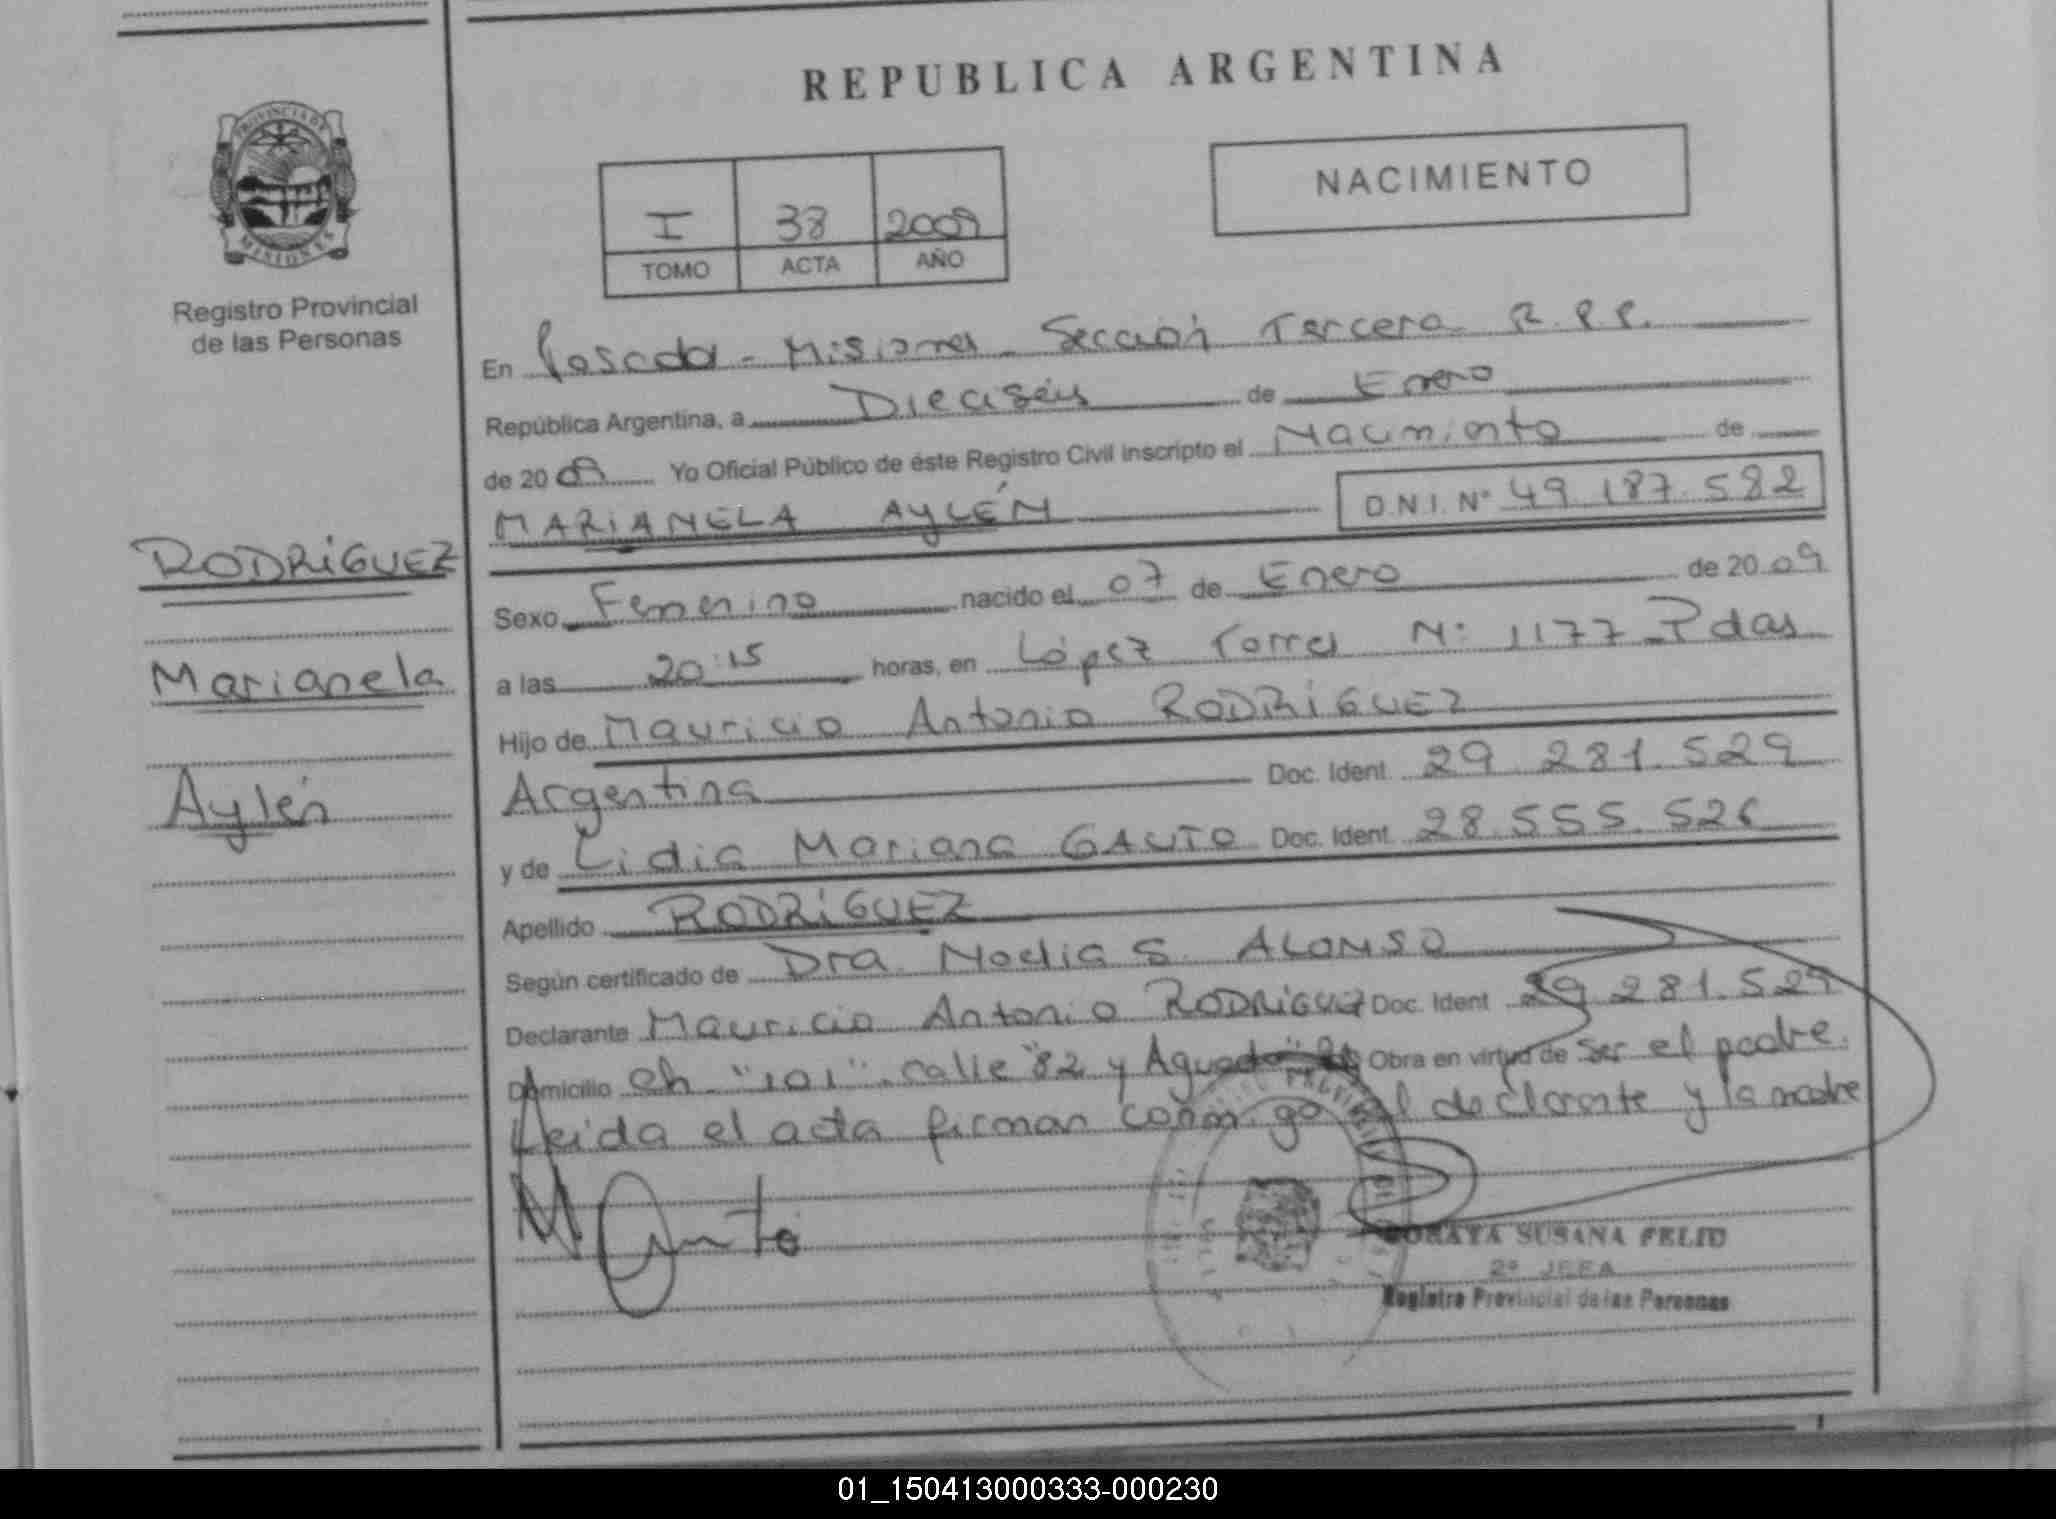 REPUBLICA ARGENTINA
PROVINCIA DE
MISIONES
Registro Provincial
de las Personas
NACIMIENTO
I 38 2009
TOMO ACTA AÑO
En Posadas - Misiones - Sección Tercera R.P.P.
República Argentina, a Dieciséis de Enero
de 2009 Yo Oficial Público de éste Registro Civil inscripto el Nacimiento de
MARIANELA AYLÉN D.N.I. N° 49.187.582
RODRÍGUEZ
Marianela
Aylén
Sexo Femenino nacido el 07 de Enero de 2009
a las 20:15 horas, en López Torres N° 1177 Pdas
Hijo de Mauricio Antonio RODRÍGUEZ
Argentina Doc. Ident. 29.281.529
y de Lidia Mariana GAUTO Doc. Ident. 28.555.526
Apellido RODRÍGUEZ
Según certificado de Dra. Noelia S. ALONSO
Declarante Mauricio Antonio RODRIGUEZ Doc. Ident 29.281.529
Domicilio Ch "101" calle "82 y Aguado" Obra en virtud de ser el padre.
Leida el acta firman conmigo el declarante y la madre
SORAYA SUSANA FELIU
2° JEFA
Registro Provincial de las Personas
01_150413000333-000230